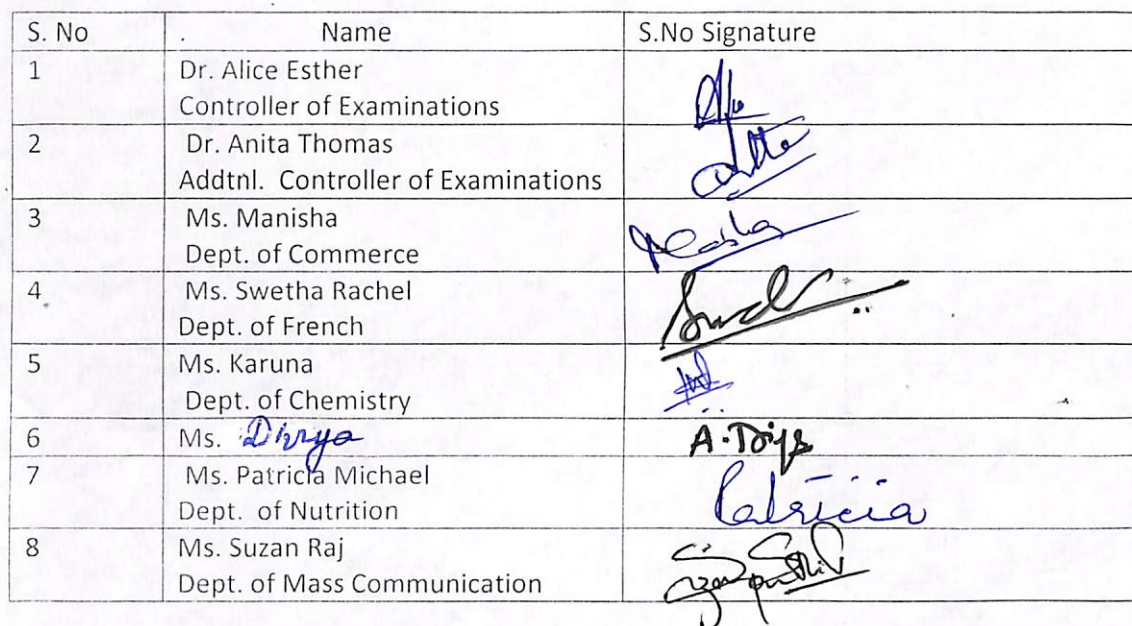 S. No . Name S.No Signature
1 Dr. Alice Esther
Controller of Examinations
2 Dr. Anita Thomas
Addtnl. Controller of Examinations
3 Ms. Manisha
Dept. of Commerce
4 Ms. Swetha Rachel
Dept. of French
5 Ms. Karuna
Dept. of Chemistry
6 Ms. Divya
7 Ms. Patricia Michael
Dept. of Nutrition Patricia
8 Ms. Suzan Raj
Dept. of Mass Communication